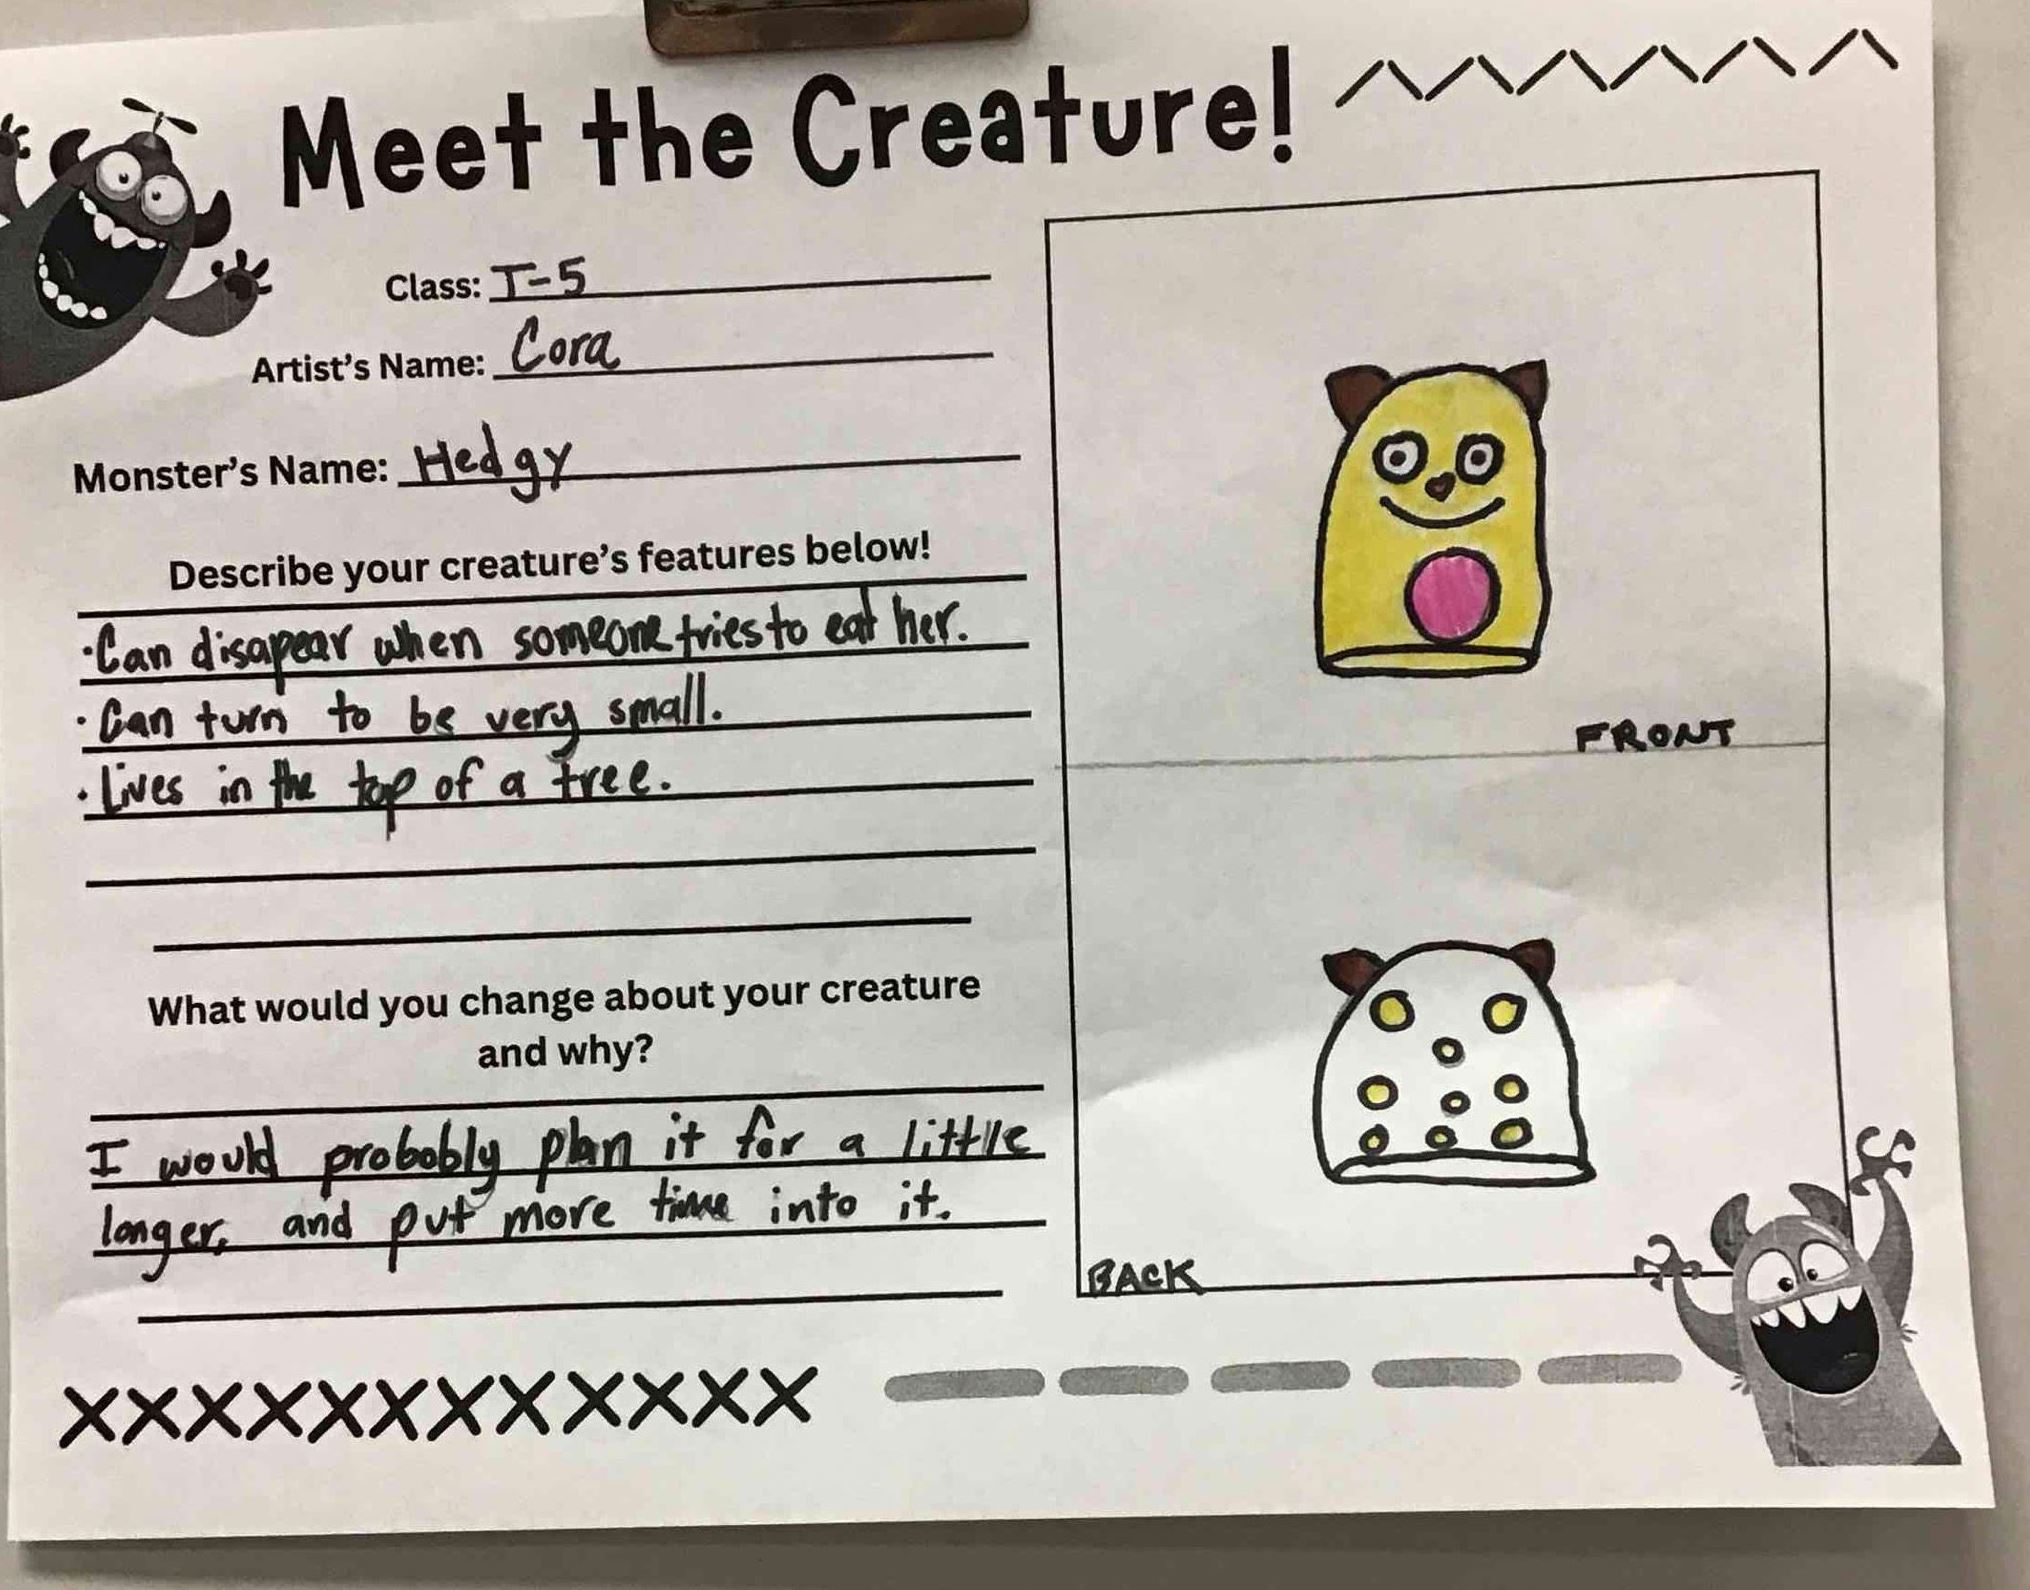 Meet the Creature!
Class: T-5
Artist's Name: Cora
Monster's Name: Hedgy
Describe your creature's features below!
·Can disapear when someone tries to eat her.
·Can turn to be very small.
·Lives in the top of a tree.
What would you change about your creature
and why?
I would probobly plan it for a little
longer, and put more time into it.
FRONT
BACK